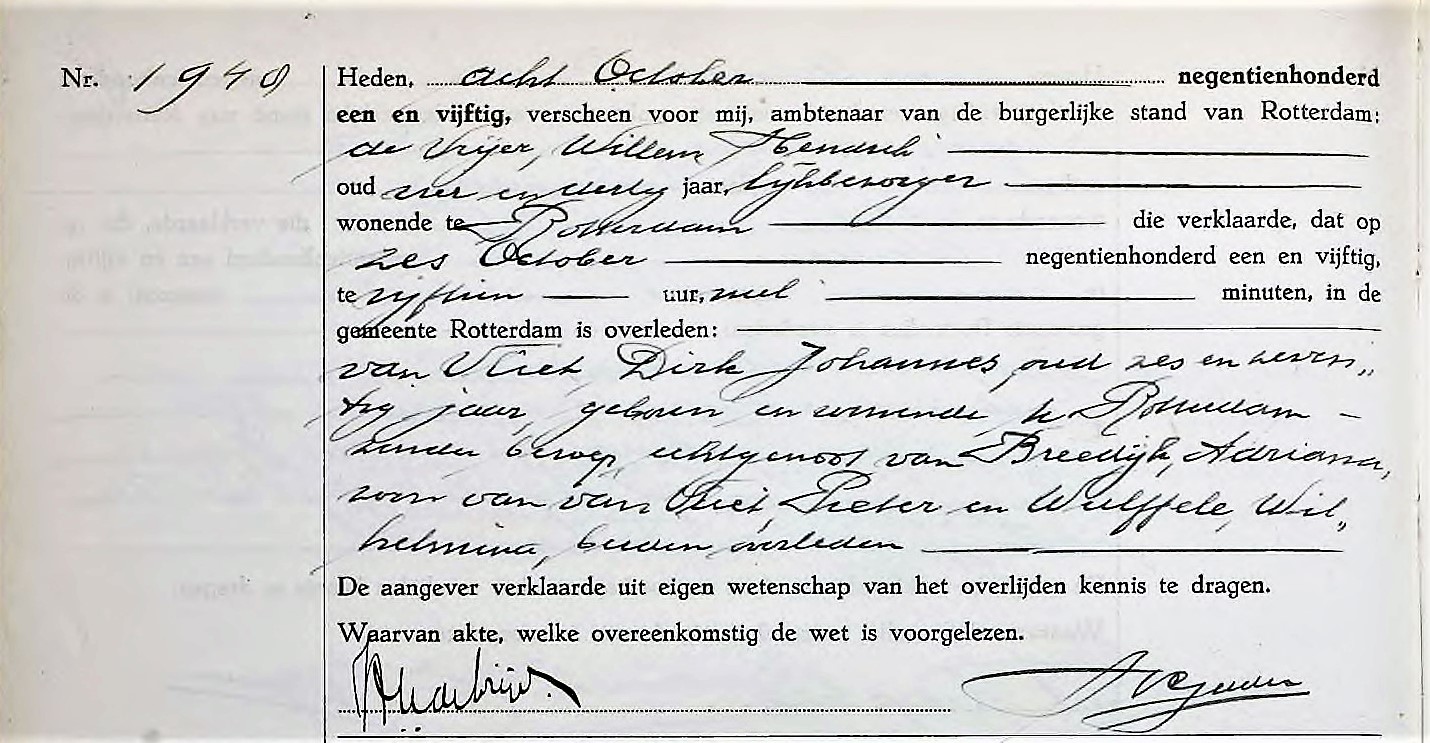 Nr. 1948
Heden, acht October negentienhonderd
een en vijftig, verscheen voor mij, ambtenaar van de burgerlijke stand van Rotterdam:
de Vrijer, Willem Hendrik
oud vier en dertig jaar, lijkbezorger
wonende te Rotterdam die verklaarde, dat op
zes October negentienhonderd een en vijftig,
te vijftien uur, nul minuten, in de
gemeente Rotterdam is overleden:
van Vliet, Dirk Johannes, oud zes en zeven„
tig jaar, geboren en wonende te Rotterdam –
zonder beroep, echtgenoot van Breedijk, Adriana,
zoon van van Vliet, Pieter en Wulffele, Wil„
helmina, beiden overleden
De aangever verklaarde uit eigen wetenschap van het overlijden kennis te dragen.
Waarvan akte, welke overeenkomstig de wet is voorgelezen.